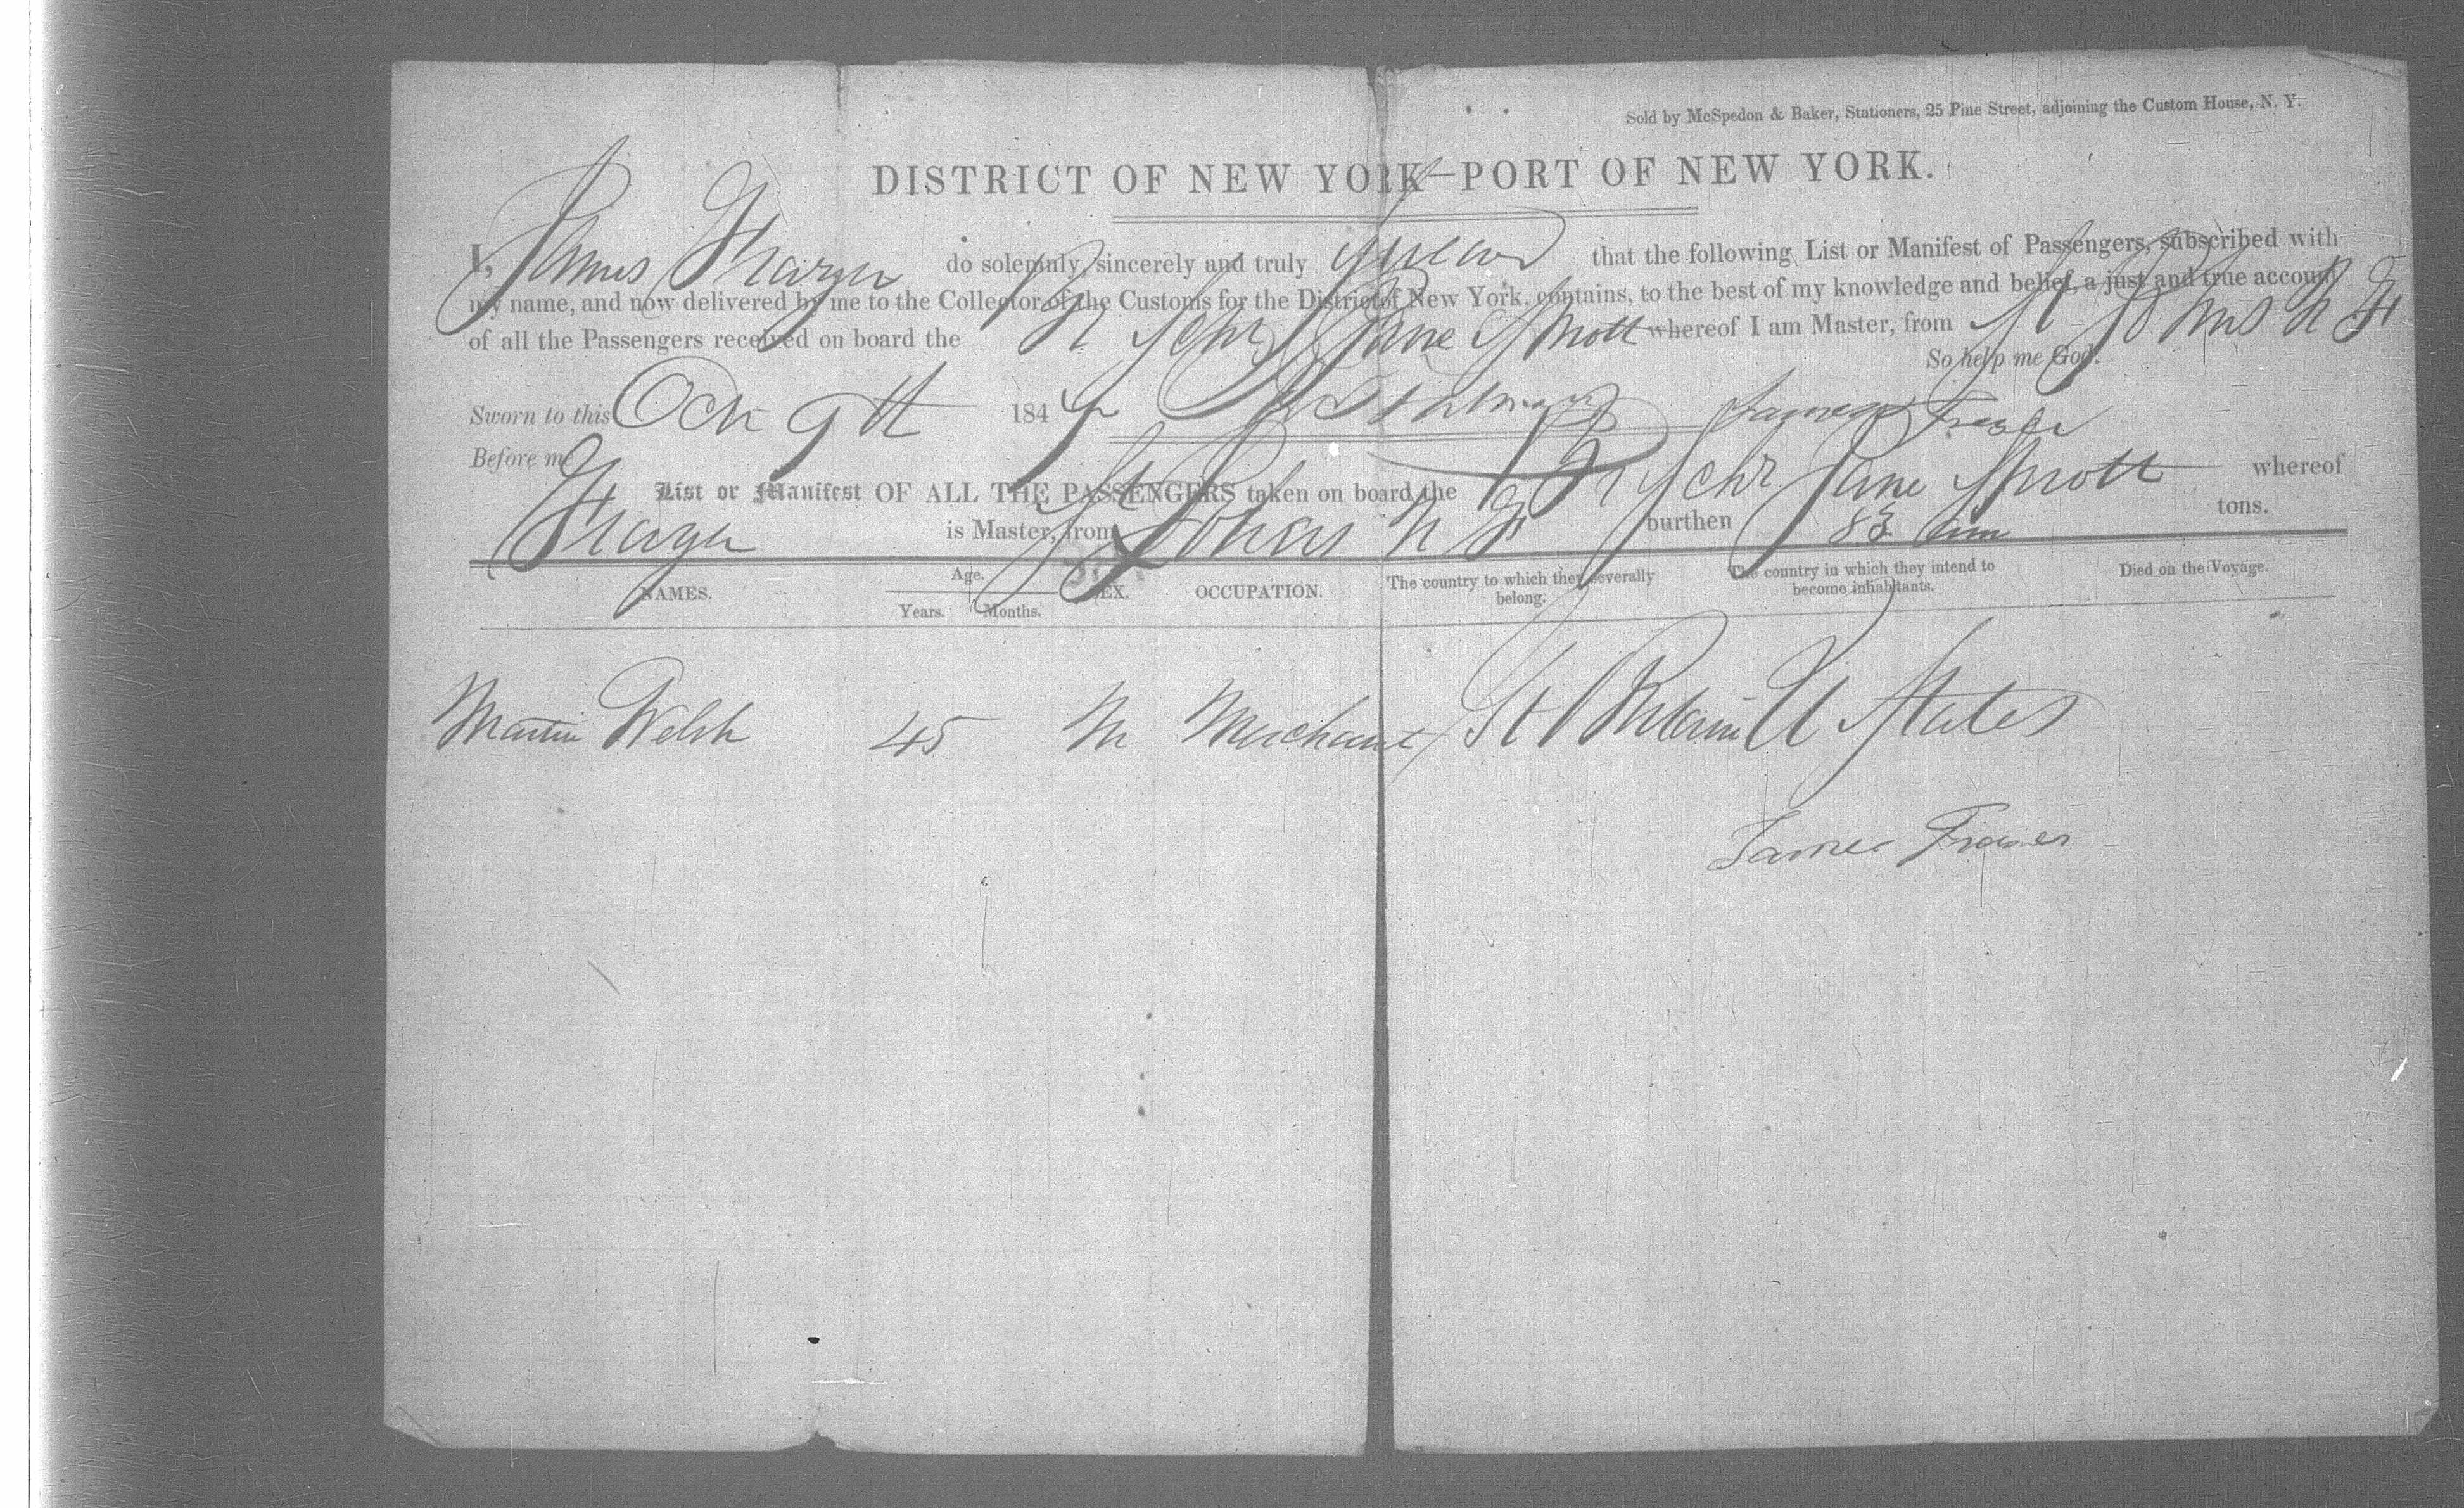 Sold by McSpedon & Baker, Stationers, 25 Pine Street, adjoining the Custom House, N. Y.
DISTRICT OF NEW YORK—PORT OF NEW YORK.
I, James Frazer do solemnly, sincerely and truly swear that the following List or Manifest of Passengers, subscribed with
my name, and now delivered by me to the Collector of the Customs for the District of New York, contains, to the best of my knowledge and belief, a just and true account
of all the Passengers received on board the Br Schr Jane Sprott whereof I am Master, from St Johns N F
So help me God.
Sworn to this Oct 9th 184 James Frazer
Before me
List or Manifest OF ALL THE PASSENGERS taken on board the Br Schr Jane Sprott whereof
Frazer is Master, from St Johns N F burthen 83 tons.
NAMES. Age. Years. Months. SEX. OCCUPATION. The country to which they severally belong. The country in which they intend to become inhabitants. Died on the Voyage.
Martin Welsh 45 M Merchant Gt Britain U States
James Frazer